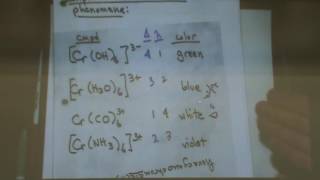 phenomane:
cmpd Δ λ color
[Cr(OH)6]3- 4 1 green
[Cr(H2O)6]3+ 3 2 blue
Cr(CO)6 3+ 1 4 white
[Cr(NH3)6]3+ 2 3 violet